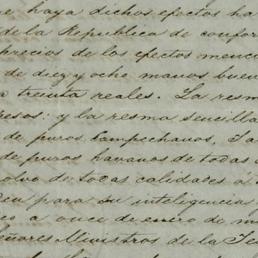 e haya dichos efectos ha
de la Republica de confor
precios de los efectos menci
de diez y ocho manos buen
a treinta reales. La resm
esos: y la resma sencilla
de puros Campechanos, Ta
de puros havanos de todas c
olvo de todas calidades á
ca para su inteligencia
es a once de enero de m
enores Ministros de la Te